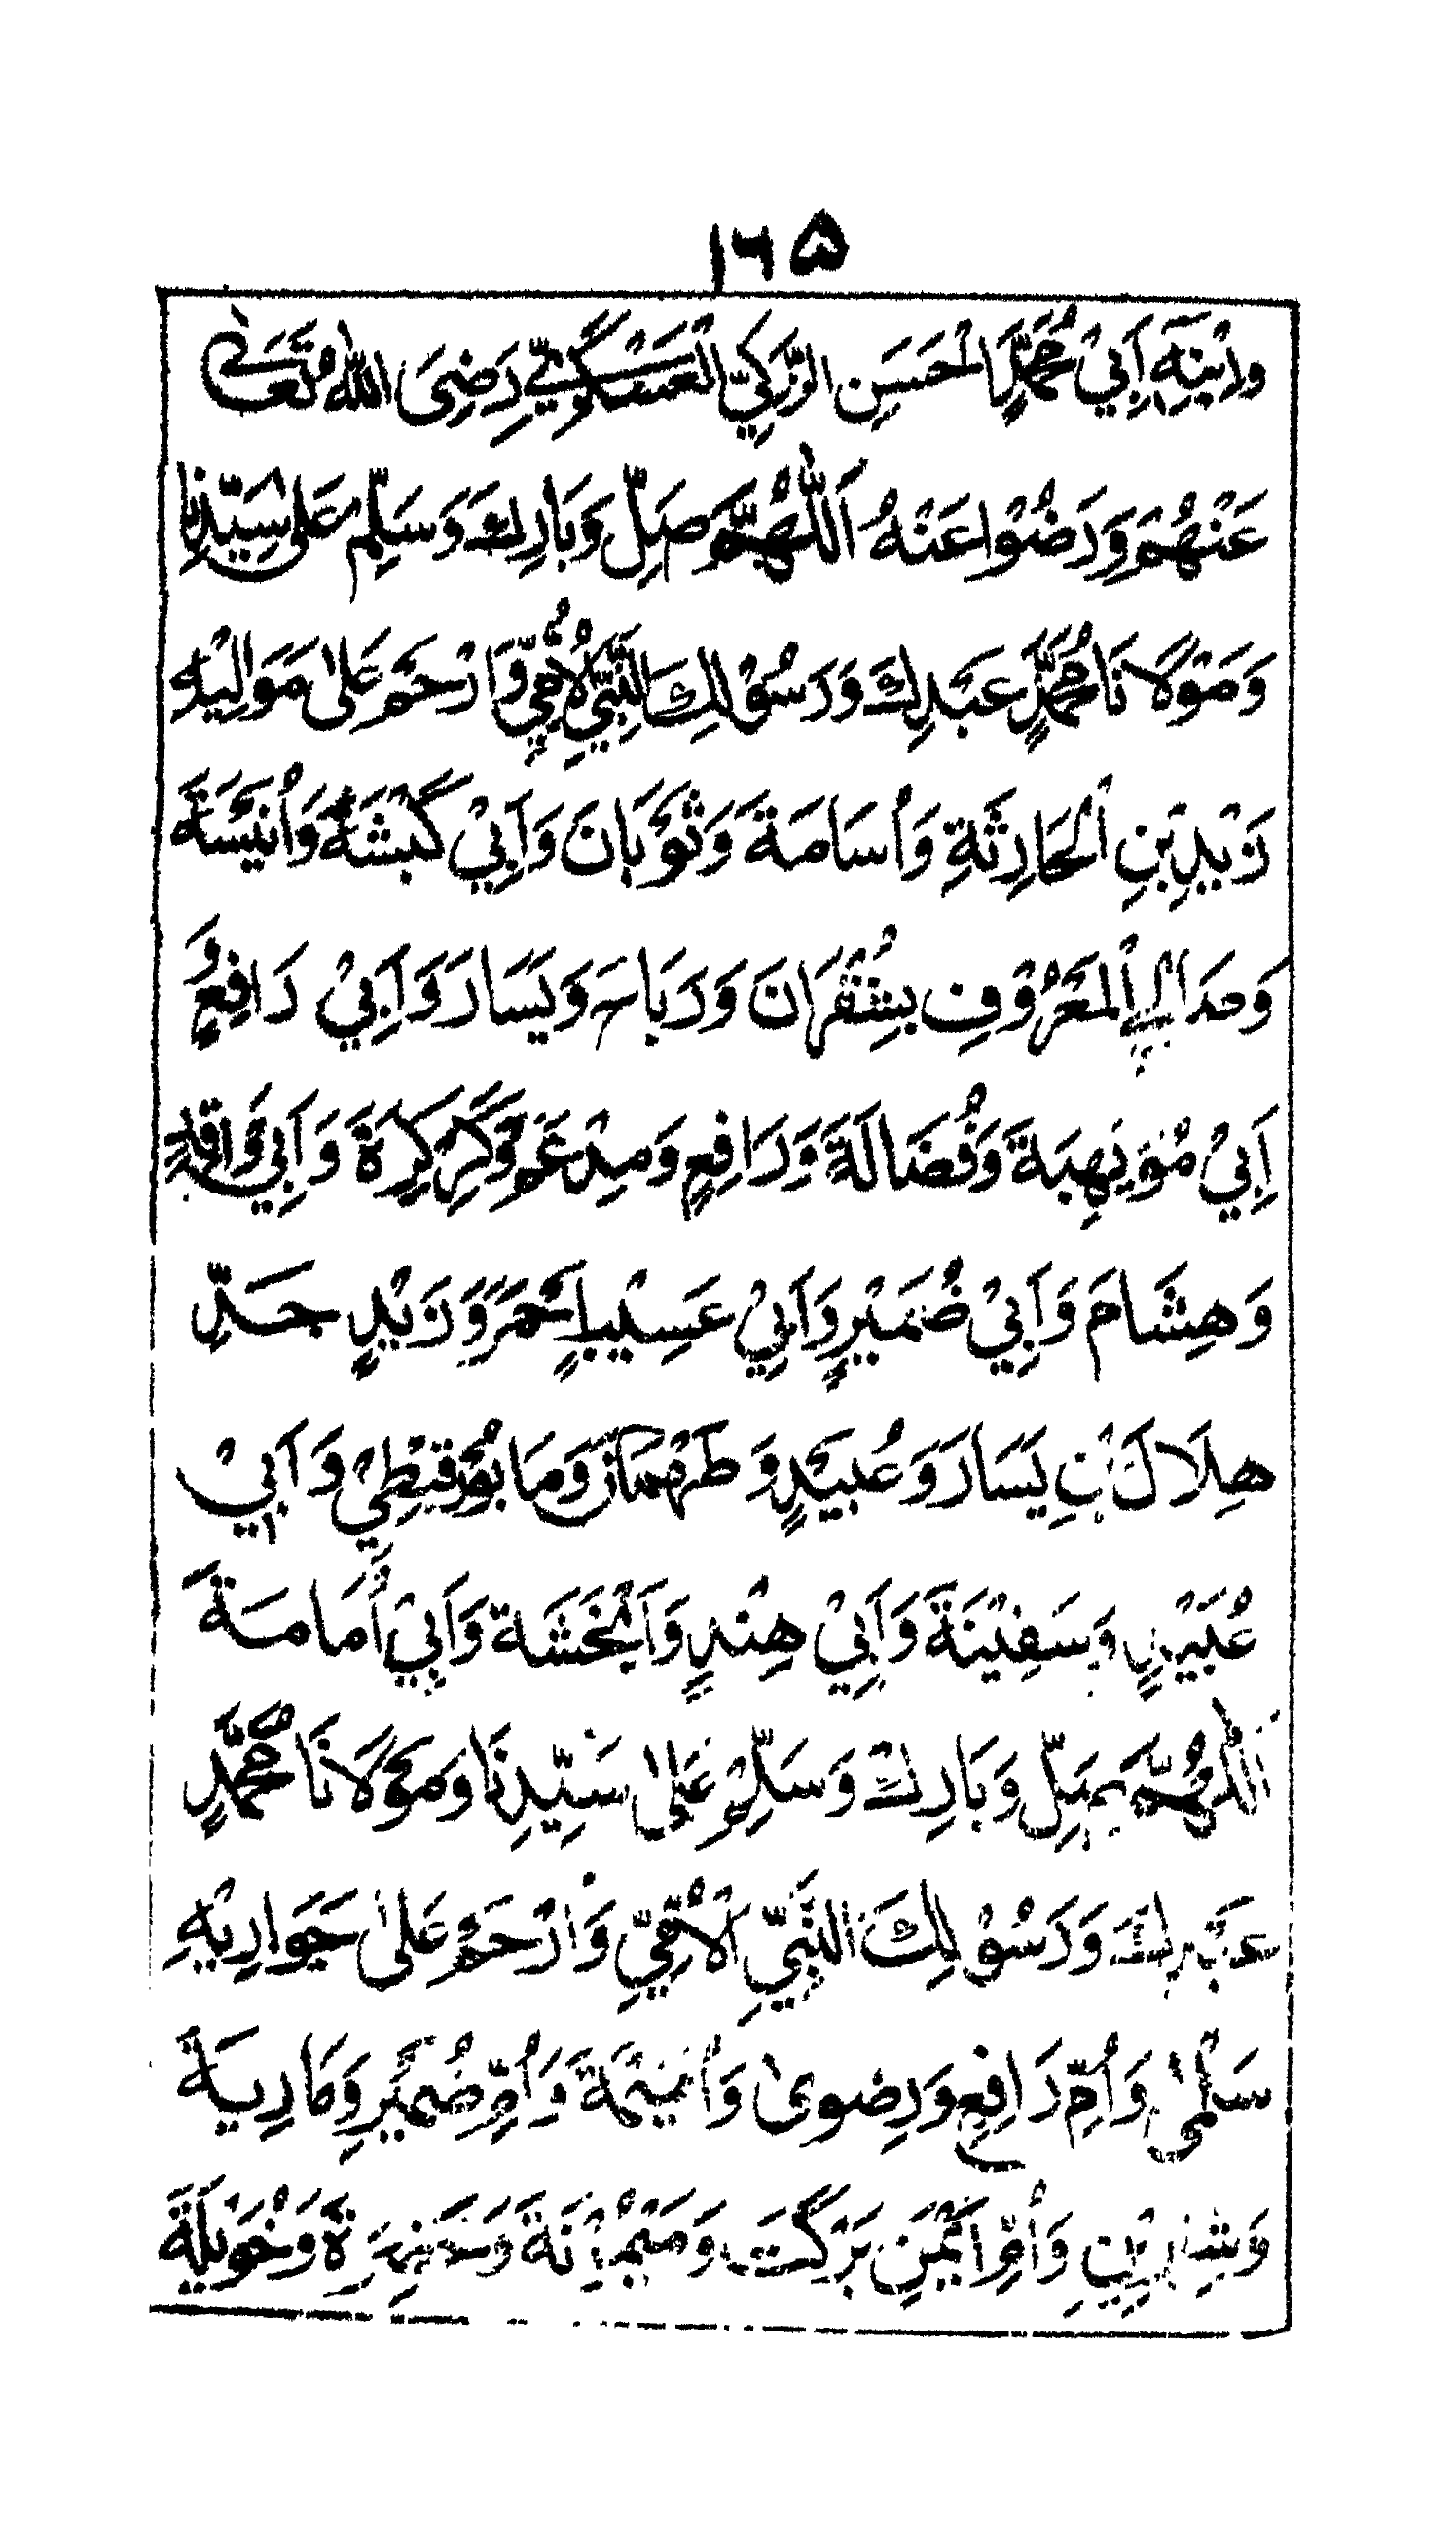 ۱۶۵
وَابْنِهِ اَبِيْ مُحَمَّدٍ الْحَسَنِ الزَّكِيِّ الْعَسْكَرِيِّ رَضِيَ اللّٰهُ تَعَالٰى
عَنْهُمْ وَرَضُوْا عَنْهُ اَللّٰهُمَّ صَلِّ وَبَارِكْ وَسَلِّمْ عَلٰى سَيِّدِنَا
وَمَوْلَانَا مُحَمَّدٍ عَبْدِكَ وَرَسُوْلِكَ النَّبِيِّ الْاُمِّيِّ وَارْحَمْ عَلٰى مَوَالِيْهِ
زَيْدِ بْنِ الْحَارِثَةِ وَاُسَامَةَ وَثَوْبَانَ وَاَبِيْ كَبْشَةَ وَاُنَيْسَةَ
وَصَالِحِ الْمَعْرُوْفِ بِشُقْرَانَ وَرَبَاحٍ وَيَسَارَ وَاَبِيْ رَافِعٍ وَ
اَبِيْ مُوَيْهِبَةَ وَفُضَالَةَ وَرَافِعٍ وَمِدْعَمٍ وَكِرْكِرَةَ وَاَبِيْ وَاقِدٍ
وَهِشَامَ وَاَبِيْ ضُمَيْرٍ وَاَبِيْ عَسِيْبٍ اَحْمَرَ وَزَيْدٍ جَدِّ
هِلَالِ بْنِ يَسَارَ وَعُبَيْدٍ وَ طَهْمَانَ وَمَابُوْرَ قِبْطِيْ وَاَبِيْ
عُبَيْدٍ وَسَفِيْنَةَ وَاَبِيْ هِنْدٍ وَاَنْجَشَةَ وَاَبِيْ اُمَامَةَ
اَللّٰهُمَّ صَلِّ وَبَارِكْ وَسَلِّمْ عَلٰى سَيِّدِنَا وَمَوْلَانَا مُحَمَّدٍ
عَبْدِكَ وَرَسُوْلِكَ النَّبِيِّ الْاُمِّيِّ وَارْحَمْ عَلٰى جَوَارِيْهِ
سَلْمٰى وَاُمِّ رَافِعٍ وَرِضْوٰى وَاُمَيْمَةَ وَاُمِّ ضُمَيْرٍ وَمَارِيَةَ
وَشِيْرِيْنَ وَاُمِّ اَيْمَنِ بَرَكَتَ وَمَيْمُوْنَةَ وَخَضِرَةَ وَخُوَيْلَةَ